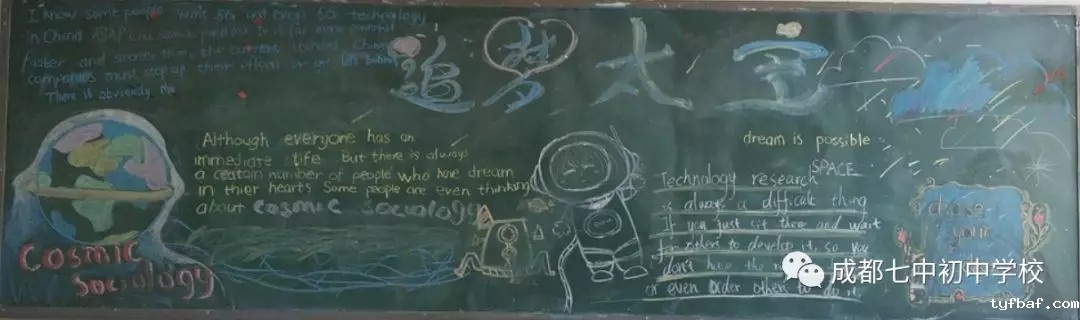 I know some people want 5G and 6G technology
in China ASAP
faster and smarter than the current
companies must step up their efforts or get left behind
There is obviously the
追梦太空
Although everyone has an
immediate life. But there is always
a ceatain number of people who have dream
in thier hearts Some people are even thinking
about Cosmic Sociology
Cosmic
Sociology
dream is possible
SPACE
Technology research
is always a difficult thing
If you just sit there and wait
for others to develop it, so you
don't have the
or even order others to do it
chase
your
成都七中初中学校
tyfbaf.com